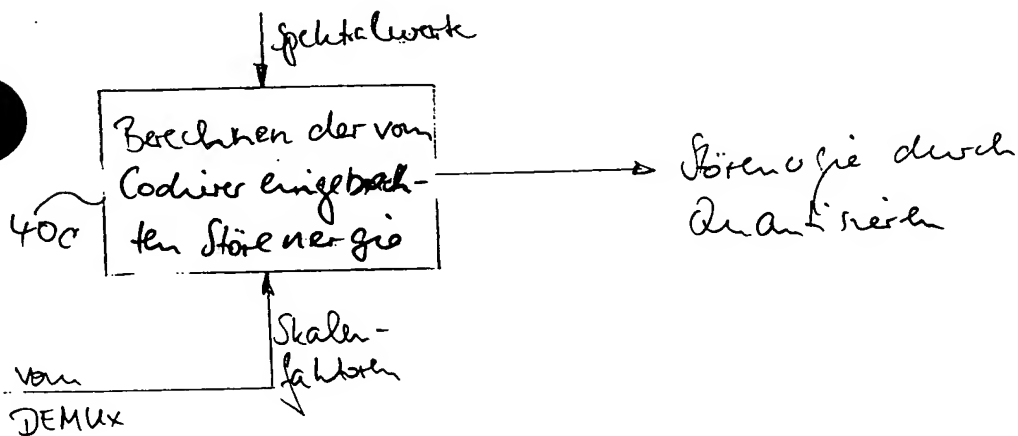 Spektralwerte
Berechnen der vom
Codierer eingebrach-
ten Störenergie
40c
Störenergie durch
Quantisieren
Skalen-
faktoren
vom
DEMUX